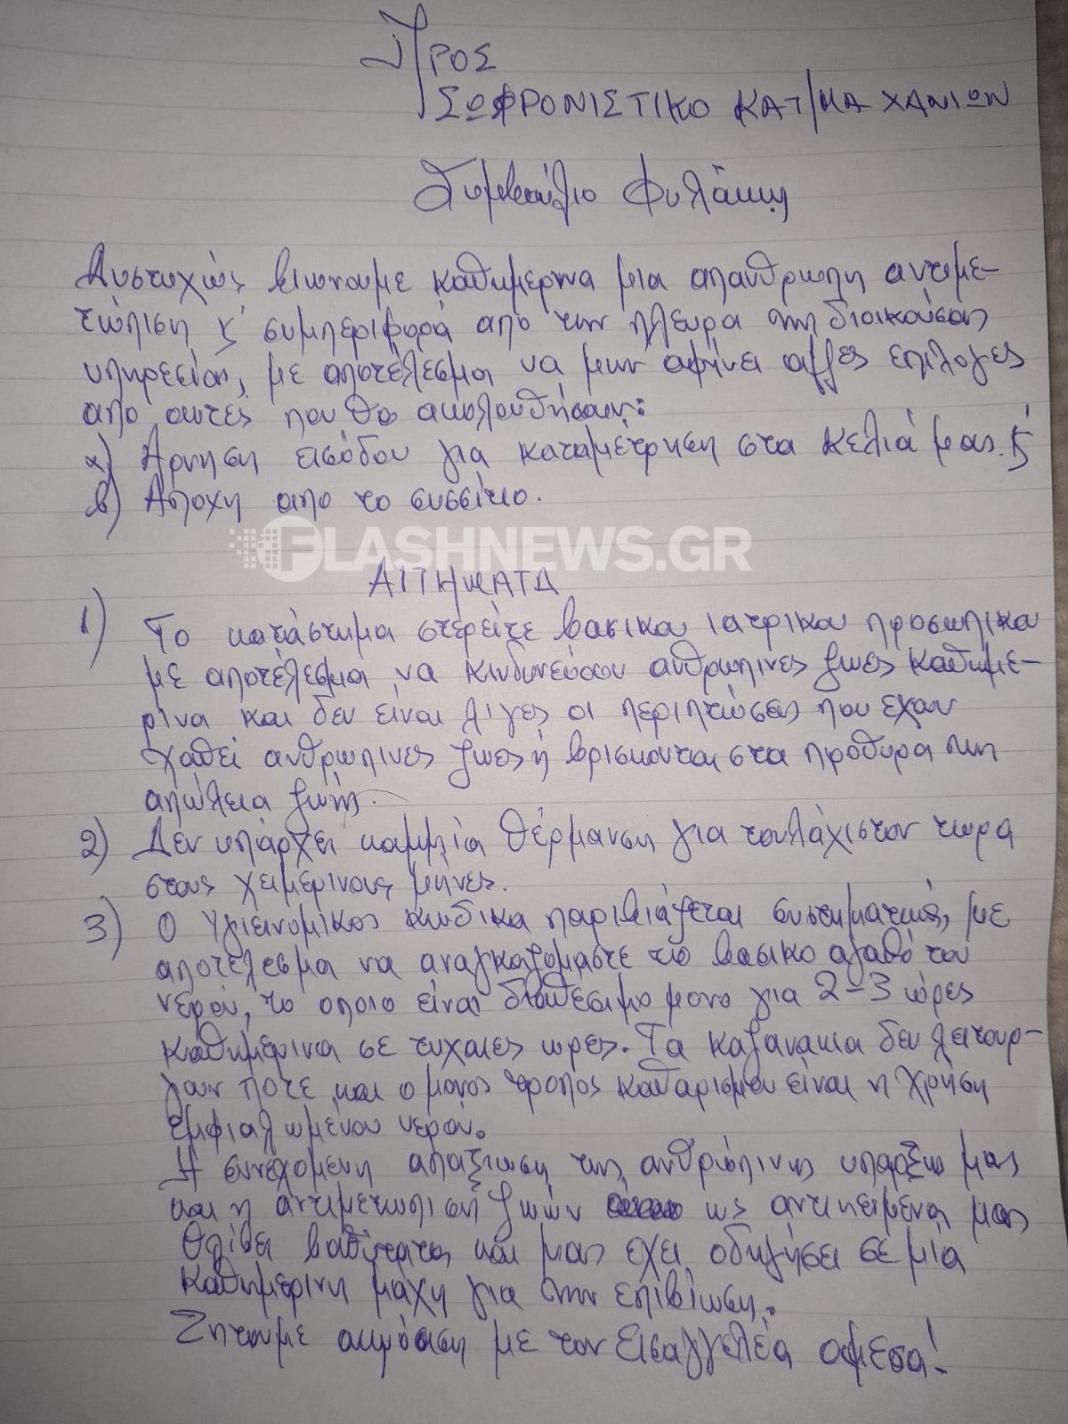 Προς
ΣΩΦΡΟΝΙΣΤΙΚΟ ΚΑΤ/ΜΑ ΧΑΝΙΩΝ
Συμβούλιο Φυλάκης
Δυστυχώς βιώνουμε καθημερινα μια απανθρωπη αντιμε-
τώπιση κ' συμπεριφορά απο την πλευρα της διοικούσας
υπηρεσίας, με αποτέλεσμα να μην αφήνει αλλες επιλογες
απο αυτές που θα ακολουθήσουν:
α) Αρνηση εισόδου για καταμέτρηση στα κελιά μας. κ'
β) Αποχη απο το συσσίτιο.
FLASHNEWS.GR
ΑΙΤΗΜΑΤΑ
1) Το κατάστημα στερείτε βασικα ιατρικου προσωπικα
με αποτέλεσμα να κινδυνεύσουν ανθρωπινες ζωες καθημε-
ρινα και δεν είναι λιγες οι περιπτώσεις που εχουν
χαθεί ανθρωπινες ζωες ή βρισκονται στα πρόθυρα της
απώλεια ζωής.
2) Δεν υπάρχει καμμία θέρμανση για τουλάχιστον τωρα
στους χειμερινους μηνες.
3) Ο υγιεινομικος κωδικα παραβιάζεται συστηματικώς, με
αποτέλεσμα να αναγκαζομαστε το βασικο αγαθό του
νερού, το οποιο είναι διαθεσιμο μονο για 2-3 ώρες
καθημερινα σε τυχαιες ωρες. Τα καζανακια δεν λειτουρ-
γουν ποτε και ο μονος τροπος καθαρισμου είναι η χρήση
εμφιαλωμένου νερού.
Η συνεχομενη απαξιωση της ανθρώπινης υπαρξης μας
και η αντιμετωπιση ζωών ως αντικειμενα μας
θλίβει βαθύτατα και μας εχει οδηγήσει σε μία
καθημερινη μαχη για την επιβίωση.
Ζητουμε ακρόαση με τον Εισαγγελέα αμεσα!